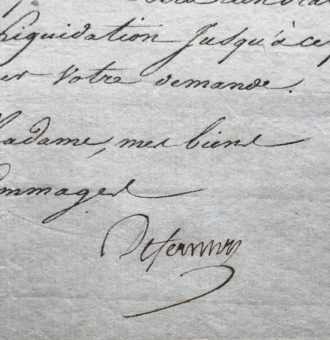 Liquidation Jusqu'à ce
votre demande.
Madame, mes biens
hommages
Defermon